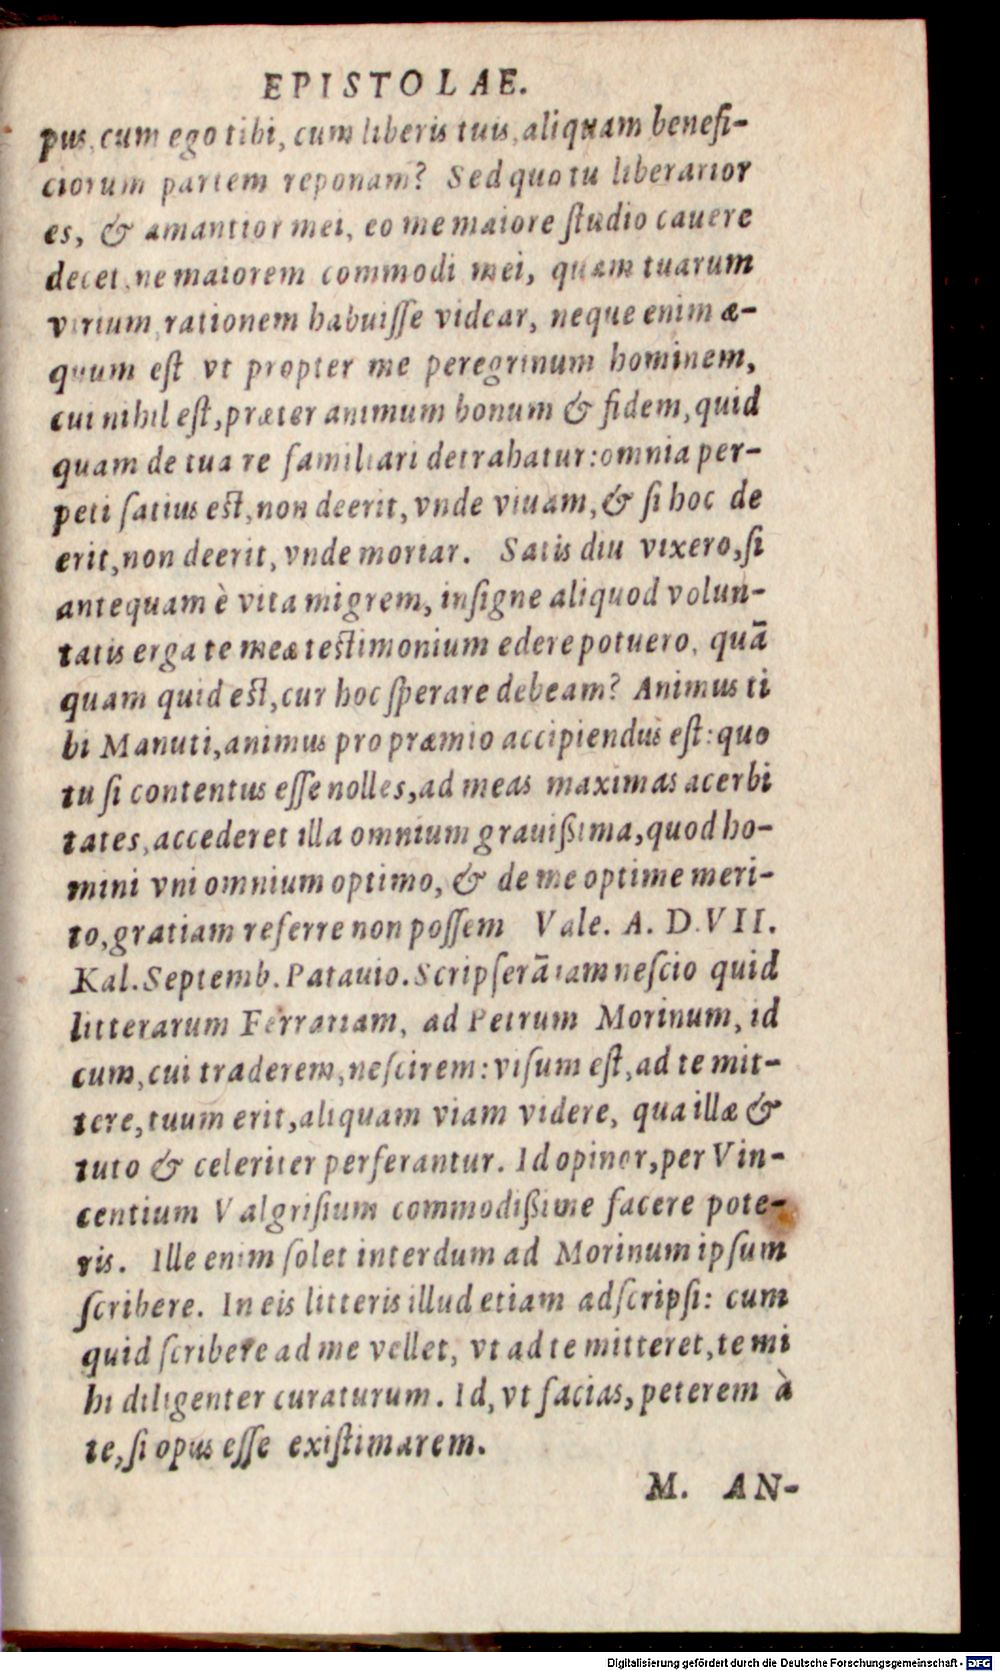 EPISTOLAE.
pus, cum ego tibi, cum liberis tuis, aliquam benefi-
ciorum partem reponam? Sed quo tu liberarior
es, & amantior mei, eo me maiore ſtudio cauere
decet, ne maiorem commodi mei, quam tuarum
virium, rationem habuiſſe videar, neque enim æ-
quum eſt vt propter me peregrinum hominem,
cui nihil eſt, præter animum bonum & fidem, quid
quam de tua re familiari detrahatur: omnia per-
peti ſatius eſt, non deerit, vnde viuam, & ſi hoc de
erit, non deerit, vnde moriar. Satis diu vixero, ſi
antequam è vita migrem, inſigne aliquod volun-
tatis erga te meæ teſtimonium edere potuero, quā
quam quid eſt, cur hoc ſperare debeam? Animus ti
bi Manuti, animus pro præmio accipiendus eſt: quo
tu ſi contentus eſſe nolles, ad meas maximas acerbi
tates, accederet illa omnium grauißima, quod ho-
mini vni omnium optimo, & de me optime meri-
to, gratiam referre non poſſem Vale. A. D. VII.
Kal. Septemb. Patauio. Scripſerā iam neſcio quid
litterarum Ferrariam, ad Petrum Morinum, id
cum, cui traderem, neſcirem: viſum eſt, ad te mit-
tere, tuum erit, aliquam viam videre, qua illæ &
tuto & celeriter perferantur. Id opinor, per Vin-
centium Valgriſium commodißime facere pote-
ris. Ille enim ſolet interdum ad Morinum ipſum
ſcribere. In eis litteris illud etiam adſcripſi: cum
quid ſcribere ad me vellet, vt ad te mitteret, te mi
hi diligenter curaturum. Id, vt facias, peterem à
te, ſi opus eſſe exiſtimarem.
M. AN-
Digitalisierung gefördert durch die Deutsche Forschungsgemeinschaft - DFG